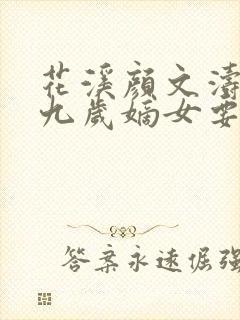 花溪顔文濤
九歲嫡女要
答案永遠倔強